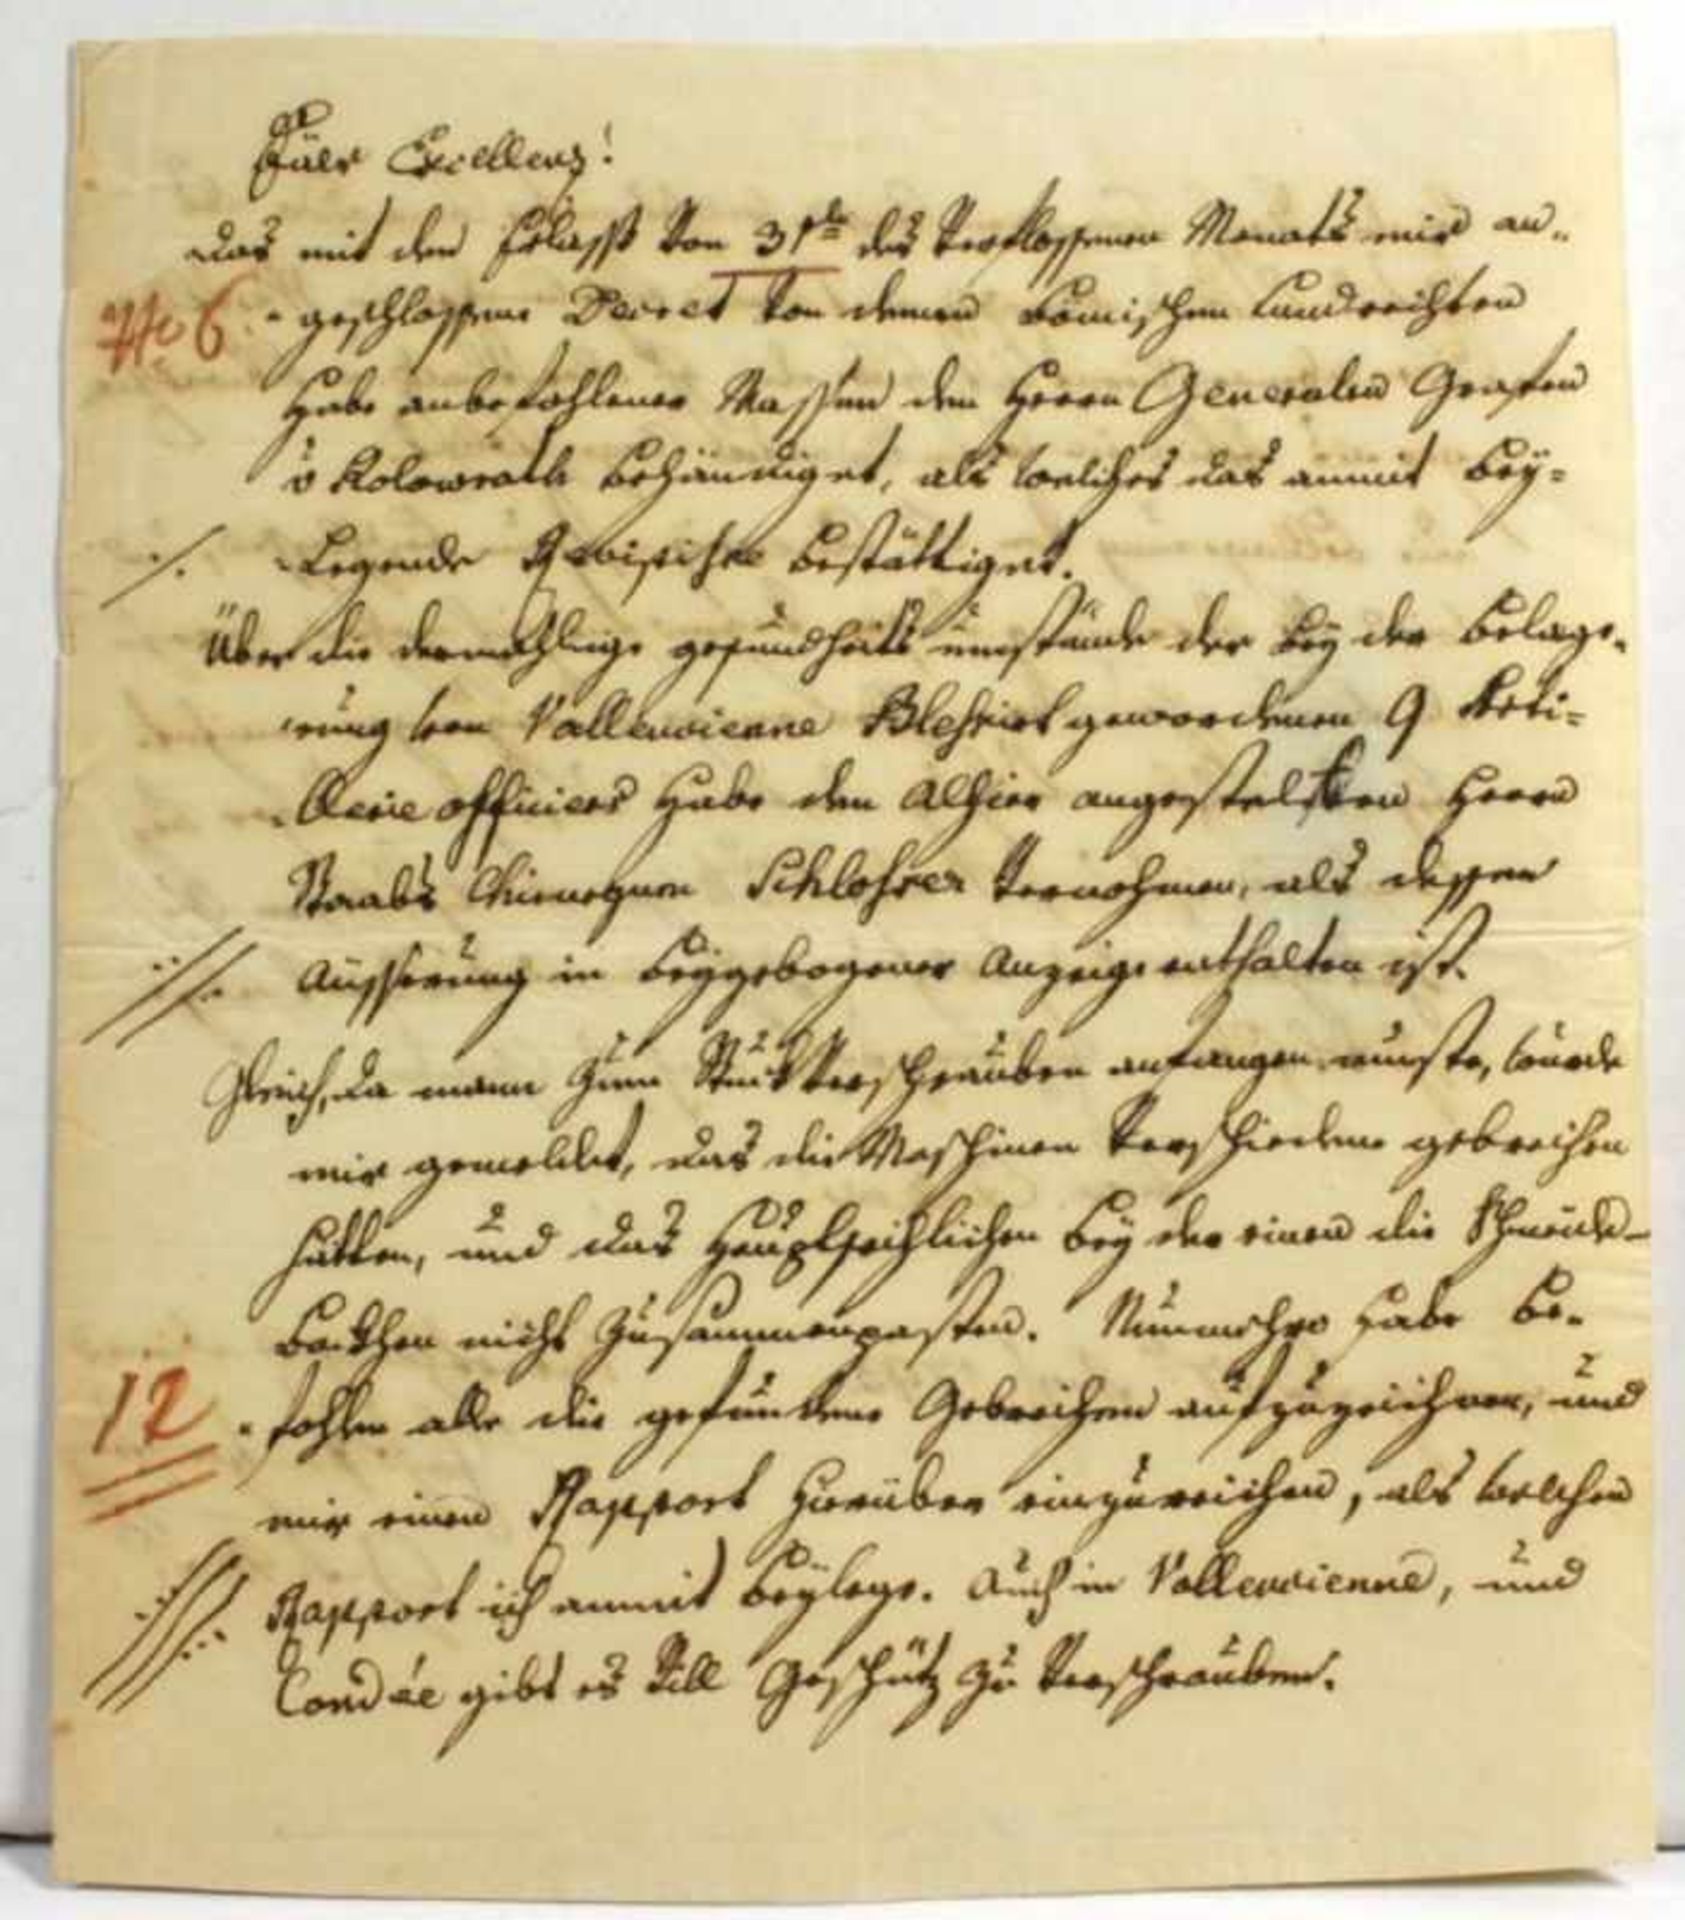 Eüer Excellenz!
Das mit dem Erlasse von 31ten des verflossenen Monats mir an-
No 6 -geschlossene Decret von denen Bömischen Landrechten
Habe anbefohlener Massen dem Herrn Generalen Grafen
v Kolowrath behändiget, als welches das anmit bey-
./. -Legende bestättiget.
Über die dermahlige gesundheits umstände der bey der Belage-
-rung von Vallencienne Blehsirt gewordenen 9 Arti-
-llerie officiers Habe den Alhier angestelsten Herrn
Staabs Chirurgum Schlohrer vernohmen, als dessen
.//. Aüsserung in beygebogener Anzeige enthalten ist.
Gleich, da mann zum Stückverschrauben anfangen muste, wurde
mir gemeldet, das die Maschinen verschiedene gebrechen
hätten, und das Hauptsechlichen bey der einen die Schneide-
backhen nicht zusammenpasten. Nunmehro habe be-
12 -fohlen alle die gefundene Gebrechen aufzuzeichnen, und
mir einen Rapport hierüber einzureichen, als welchen
.///. Rapport ich anmit beylege. Auch in Vallencienne, und
Condée gibt es Vill Geschütz zu verschrauben.